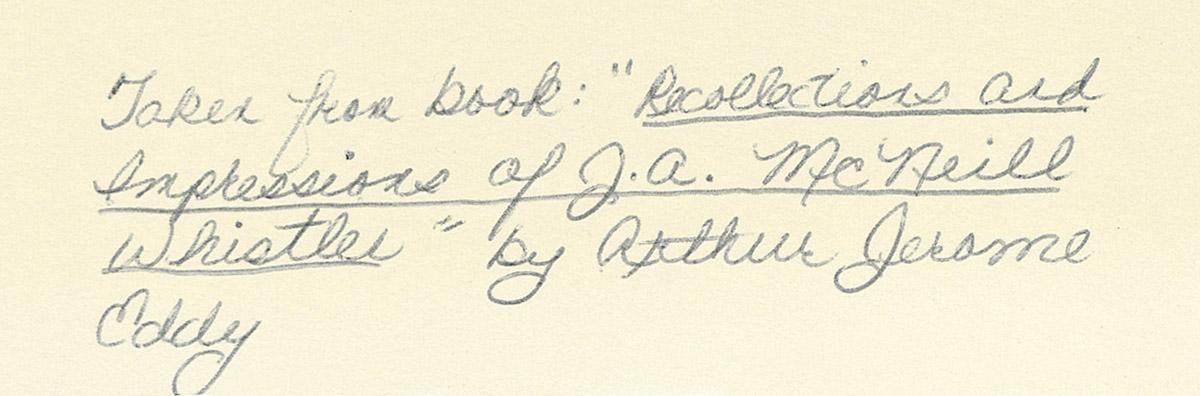 Taken from book: "Recollections and
Impressions of J.A. McNeill
Whistler" by Arthur Jerome
Eddy